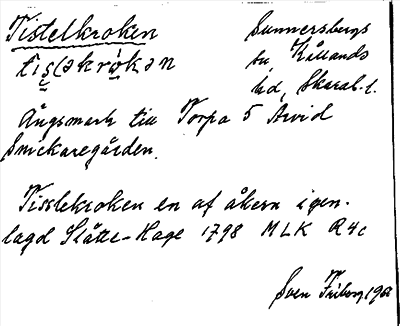 Tistelkroken
Sunnersbergs
tisləkrokən
sn, Kållands
hd, Skarab. l.
Ängsmark till Torpa 5 Arvid
Snickaregården.
Tisslekroken en af åkern igen-
lagd Slåtte-Hage 1798 MLK R4c
Sven Friberg 196